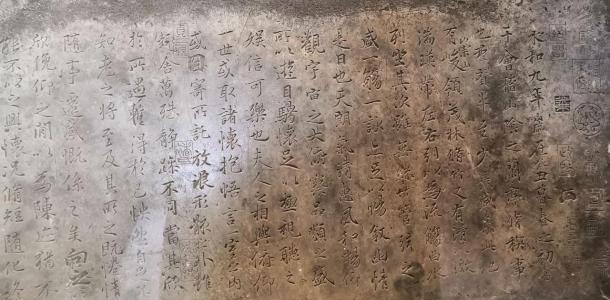 永和九年歲在癸丑暮春之初會
于會稽山陰之蘭亭脩稧事
也羣賢畢至少長咸集此地
有崇山峻領茂林脩竹又有清流激
湍暎帶左右引以為流觴曲水
列坐其次雖無絲竹管弦之
盛一觴一詠亦足以暢敘幽情
是日也天朗氣清惠風和暢仰
觀宇宙之大俯察品類之盛
所以遊目騁懷足以極視聽之
娛信可樂也夫人之相與俯仰
一世或取諸懷抱悟言一室之內
或因寄所託放浪形骸之外雖
趣舍萬殊靜躁不同當其欣
於所遇暫得於己怏然自足
知老之將至及其所之既惓情
隨事遷感慨係之矣向之
欣俛仰之閒以為陳迹猶不
能不以之興懷況脩短隨化終